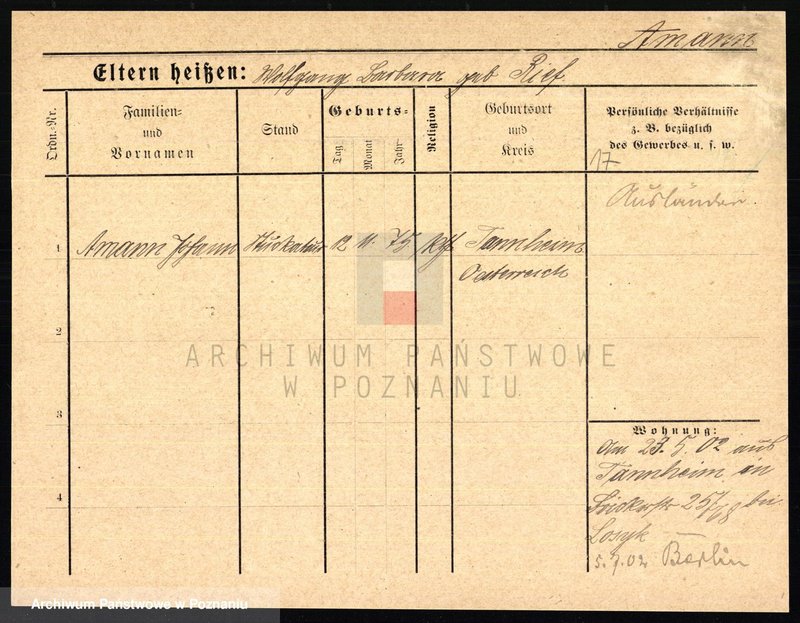 Amann
Eltern heißen: Wolfgang Barbara geb Rief
Ordn.-Nr.
Familien-
und
Vornamen
Stand
Geburts-
Tag
Monat
Jahr
Religion
Geburtsort
und
Kreis
Persönliche Verhältnisse
z. B. bezüglich
des Gewerbes u. s. w.
17
Ausländer.
1 Amann Johann Stuckateur 12 11. 75 kath Tannheim
Oesterreich
2
3
4
ARCHIWUM PAŃSTWOWE
W POZNANIU
Wohnung:
Am 23. 5. 02 aus
Tannheim in
257/68 bei
5. 7. 02 Berlin
Archiwum Panstwowe w Poznaniu